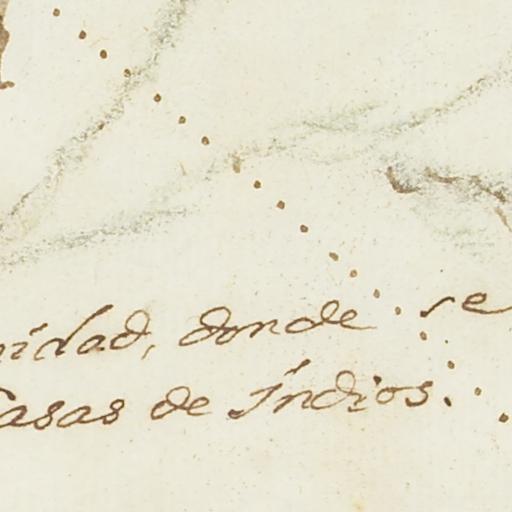 nidad, donde se
Casas de Índios.